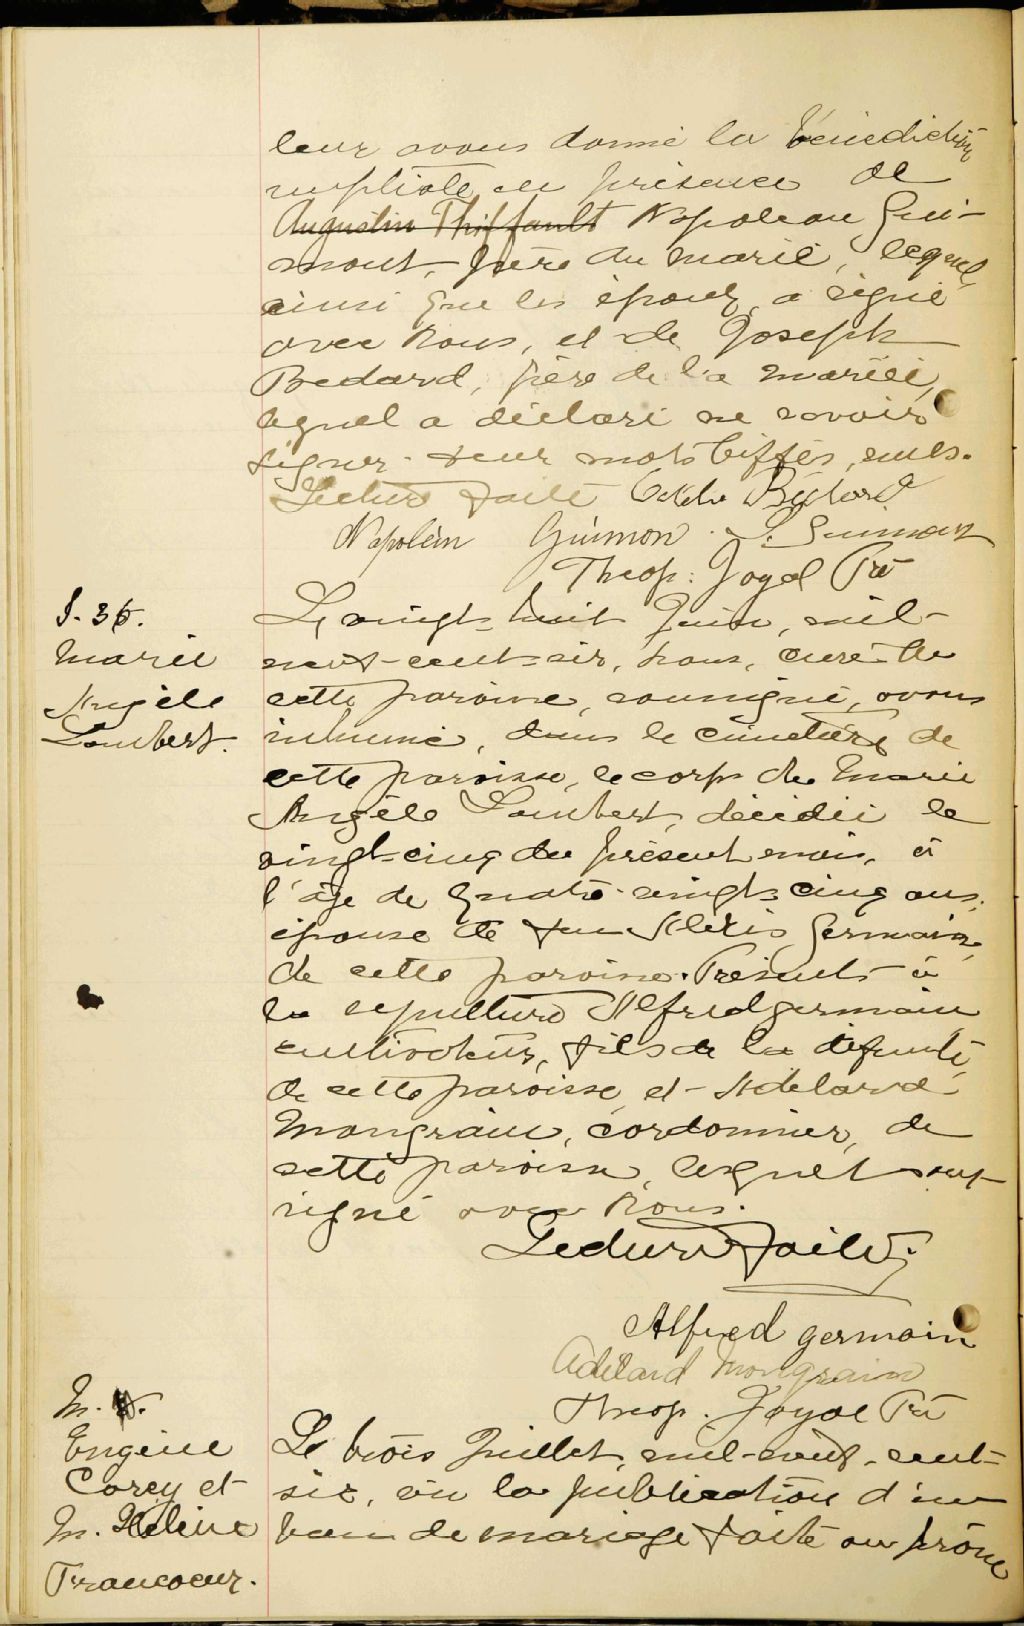 leur avons donné la bénédiction
nuptiale en présence de
Augustin Thiffault Napoléon Gui-
mont, père du marié, lequel,
ainsi que les époux, a signé
avec Nous, et de Joseph
Bedard, père de la mariée,
lequel a déclaré ne savoir
signer. deux mots biffés, nuls.
Lecture faite Bédard
Napoléon Guimon. Guimon
Theop: Joyal Ptre
S. 36.
Marie
Angèle
Lambert.
Le vingt-huit Juin, mil-
neuf-cent-six, Nous, curé de
cette paroisse, soussigné, avons
inhumé, dans le cimetière de
cette paroisse, le corps de Marie
Angèle Lambert, décédée le
vingt-cinq du présent mois, à
l'âge de quatre-vingt-cinq ans,
épouse de feu Alexis Germain,
de cette paroisse. Présents à
la sépulture Alfred germain
cultivateur, fils de la défunte,
de cette paroisse, et Adélard
Mongrain, cordonnier, de
cette paroisse, lesquels ont
signé avec Nous.
Lecture faite.
Alfred germain
Adélard Mongrain
Theop. Joyal Ptre
M.
Eugène
Corey et
M. Héline
Francoeur.
Le trois Juillet, mil-neuf-cent-
six, vu la publication d'un
ban de mariage faite au prône